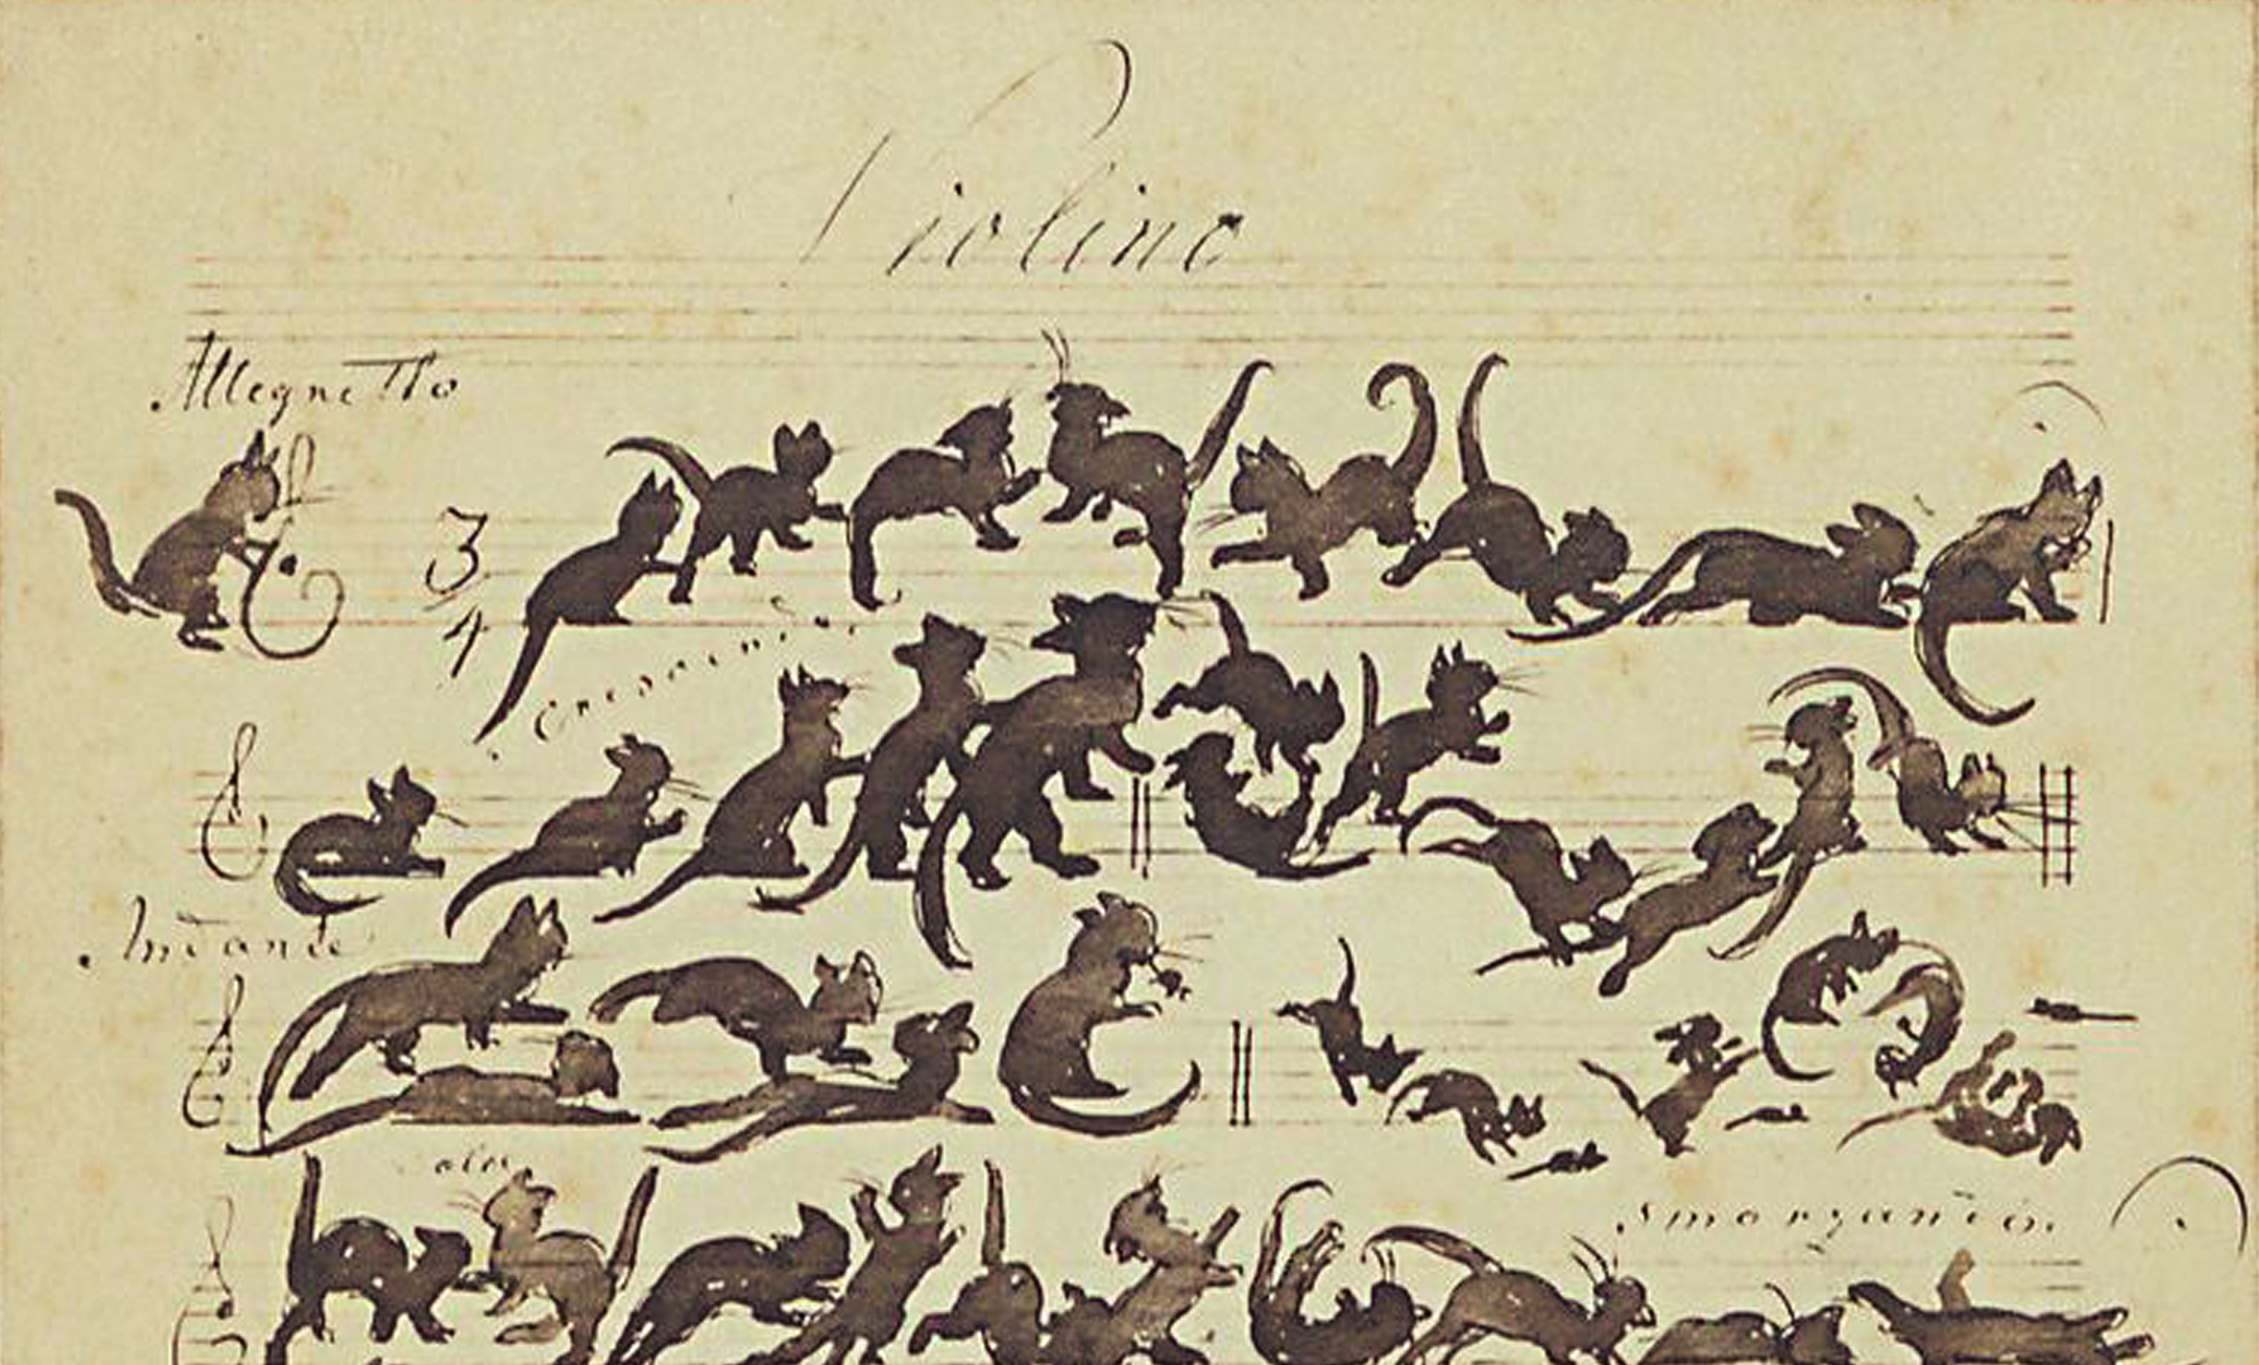 Violino
Allegretto
3
4
Crescendo
Andante
dolce
Smorzando.